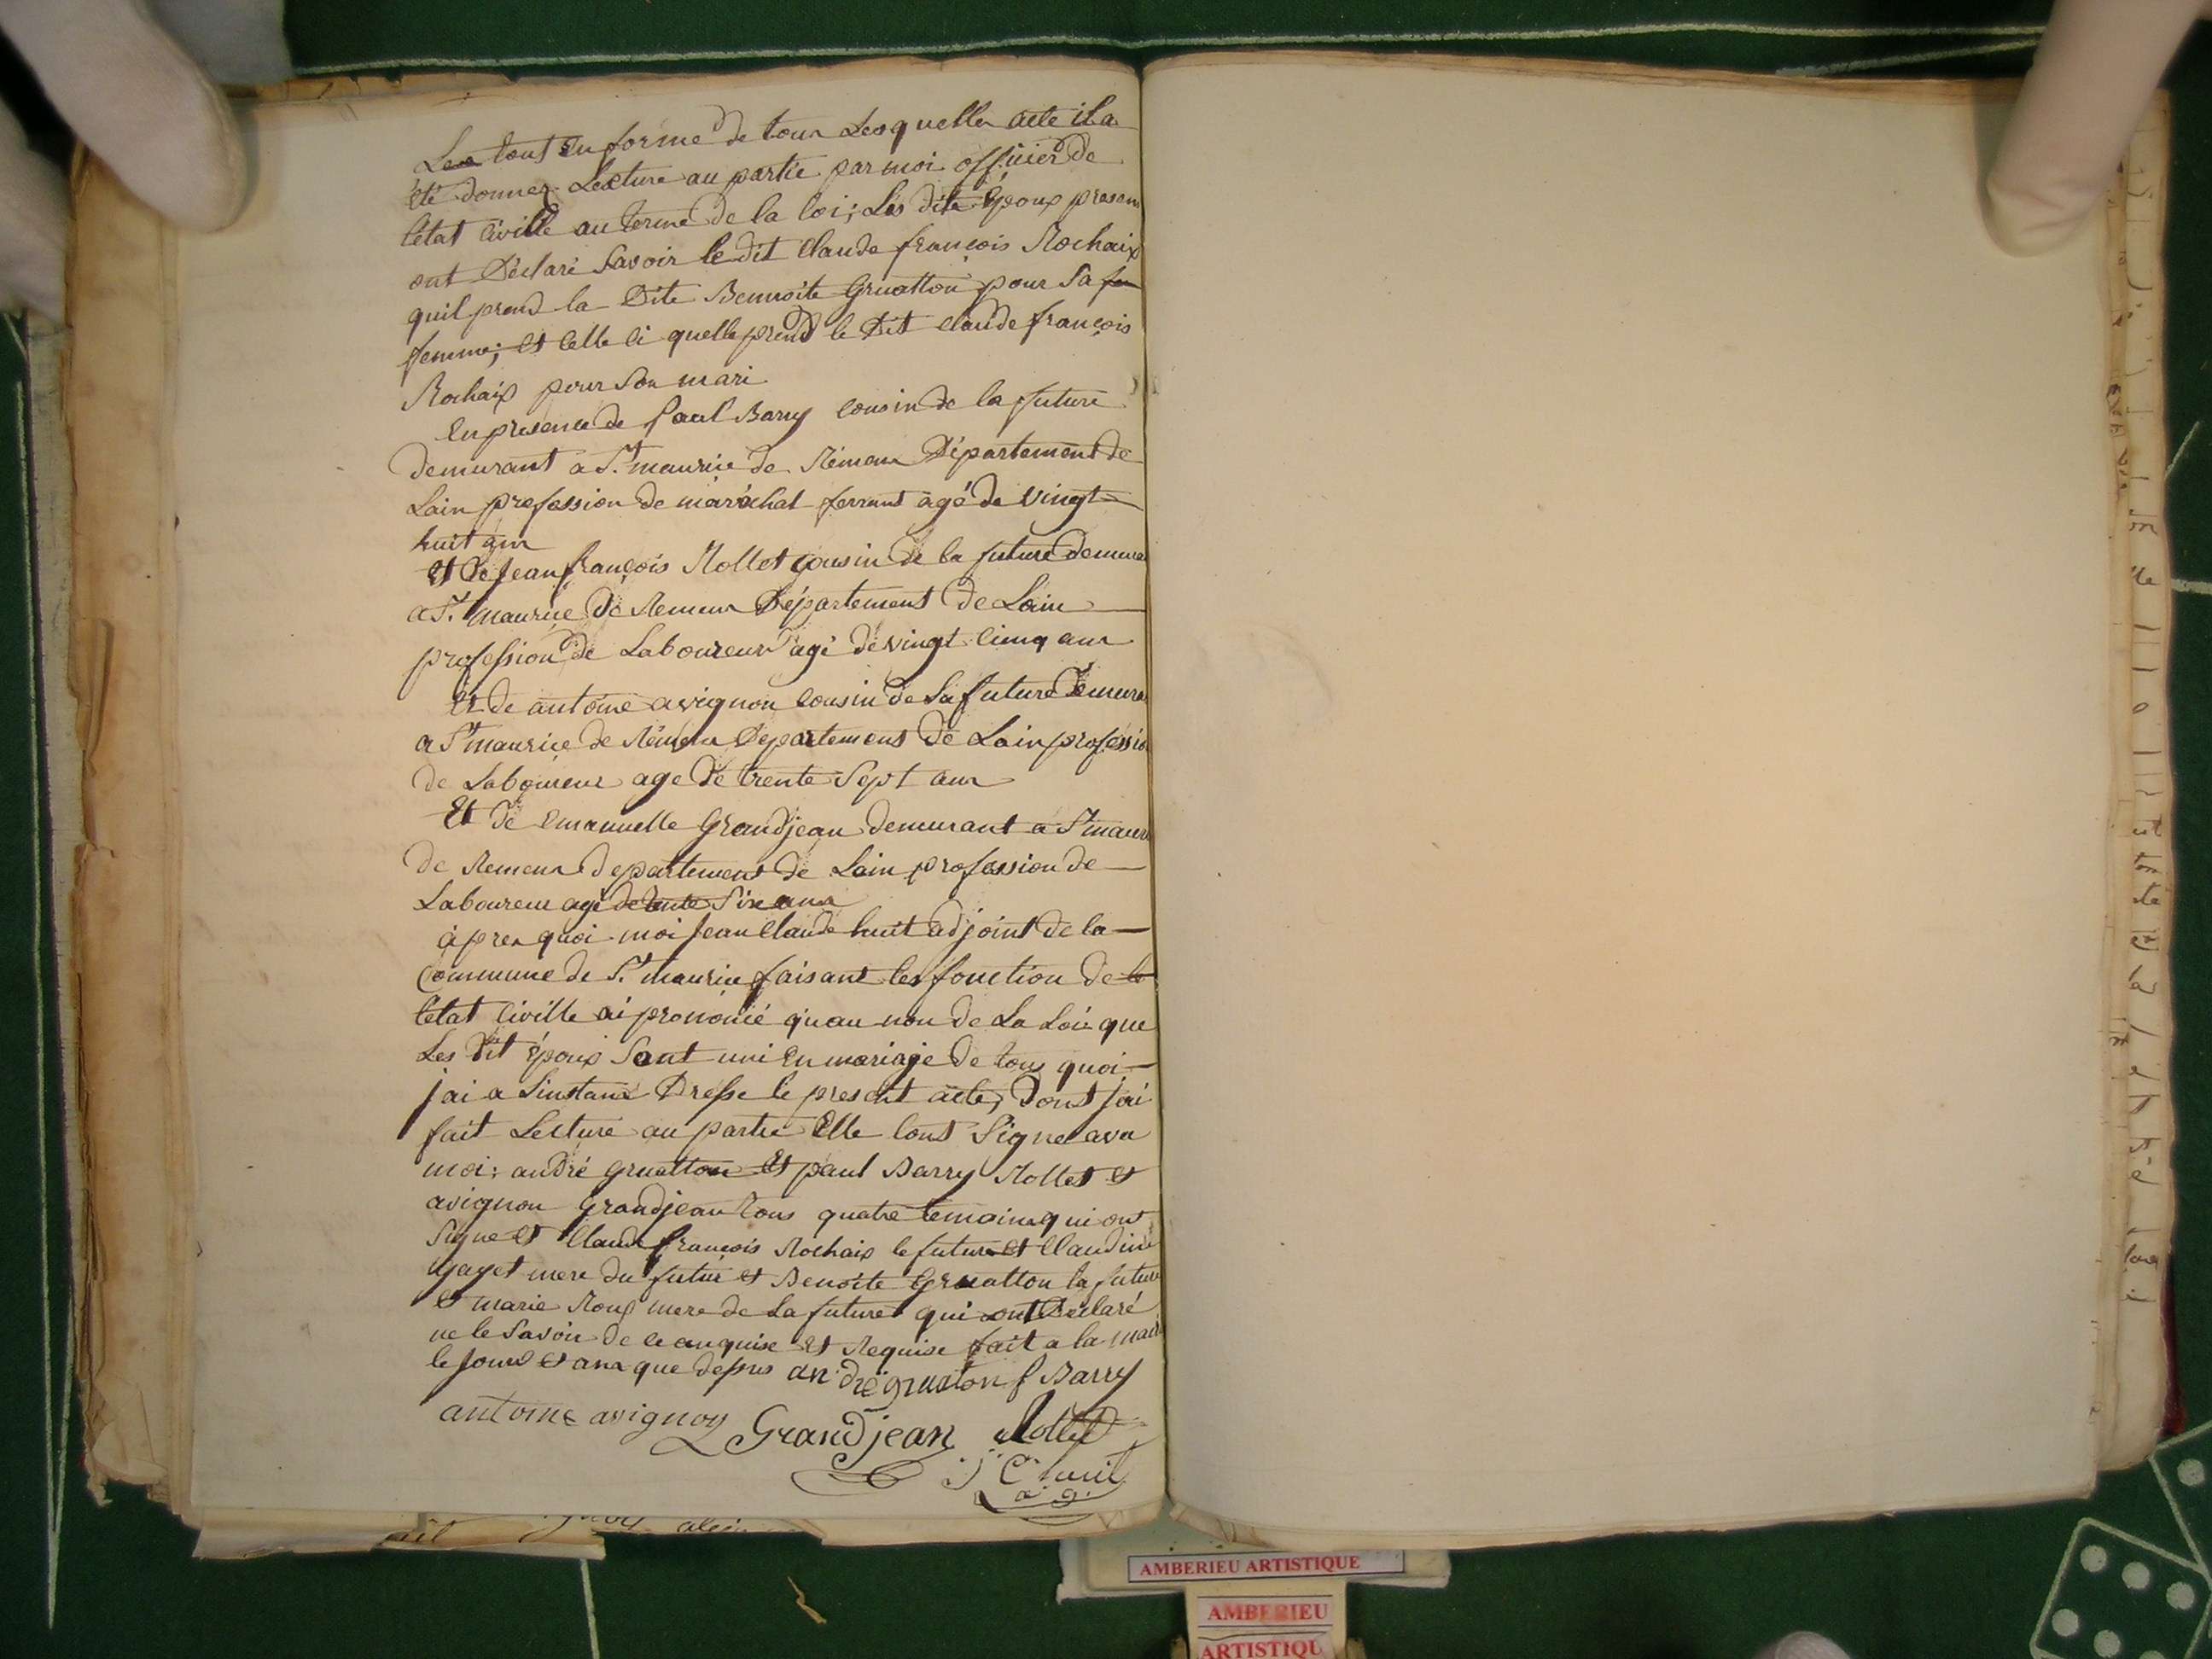 Le tout en forme de tous Lesquelles acte il a
été donnez Lecture au partie par moi officier de
létat Civille au terme de la loi; Les dits Époux presen
ont Déclaré Savoir le dit Claude françois Rochaix
quil prend la Dite Bennoite Gruatton pour Sa fem
femme; et Celle Ci quelle prend le Dit Claude françois
Rochaix pour Son mari
En presence de Paul Barry Cousin de la future
demurant a St maurice de Rémens Département de
Lain profession de maréchal ferrant âgé de vingt
huit ans
Et de Jean françois Mollet Cousin de la future demura
a St maurice De Remens Département de Lain
profession de Laboureur âgé de vingt Cinq ans
Et de antoine avignon Cousin de La future Demura
a St maurice de Rémens Departement de Lain professio
de Laboureur age de trente Sept ans
Et de Emanuelle Grandjean demurant a St mauri
de Remens departement de Lain profession de
Laboureur agé de trente Six ans
âpres quoi moi Jean Claude huit adjoint de la
Commune de St maurice faisant les fonction de
létat Civille ai prononcé quau non de La Loi que
Les Dit époux Sont uni En mariage de tous quoi
jai a Linstant Dressé le present acte, Dont jai
fait Lecture au partie Elle Lont Signe avec
moi: andré gruatton Et paul Barry Mollet et
avignon Grandjean tous quatre temoins qui ont
Signe et Claude françois Rochaix le future et Claudine
Gayet mere du futur et Benoite Gruatton la future
et marie Roux mere de La future qui ont Déclaré
ne le Savoir de ce anquise et Requise fait a la mair
le Jours et ans que dessus andré gruaton P Barry
antoine avignon Grandjean Mollet
J C huit
a. g.
AMBERIEU ARTISTIQUE
AMBERIEU
ARTISTIQU